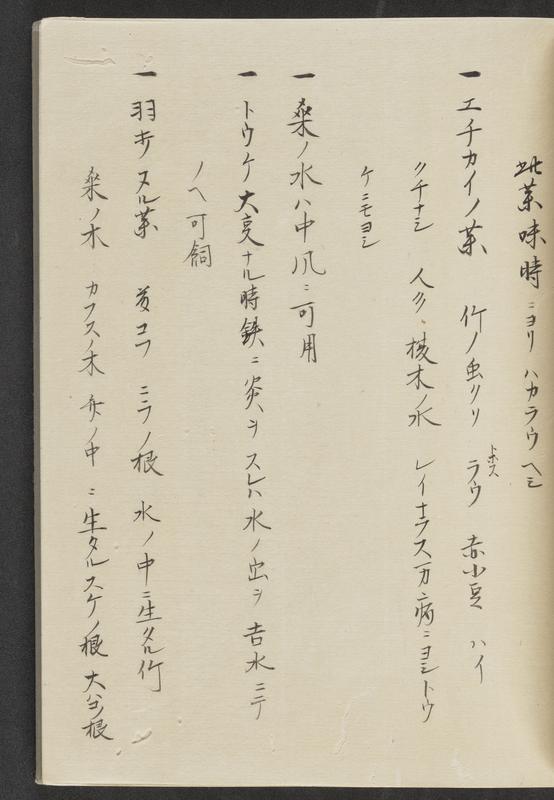 此薬味時ニヨリハカラウヘシ
一 エチカイノ薬 竹ノ虫クソ ラウ 赤小豆 ハイ
トホス
クチナシ 人クソ 棱木ノ水 レイナラス万病ニヨシトウ
ケニモヨシ
一 桑ノ水ハ中風ニ可用
一 トウケ大亊ナル時鉄ニ炎ヲスレハ水ノ出ヲ吉水ニテ
ノヘ可飼
一 羽ヲヌル薬 ヨコフ ニラノ根 水ノ中ニ生タル竹
桑ノ木 カフスノ木 舟ノ中ニ生タルスケノ根 大ヨシ根